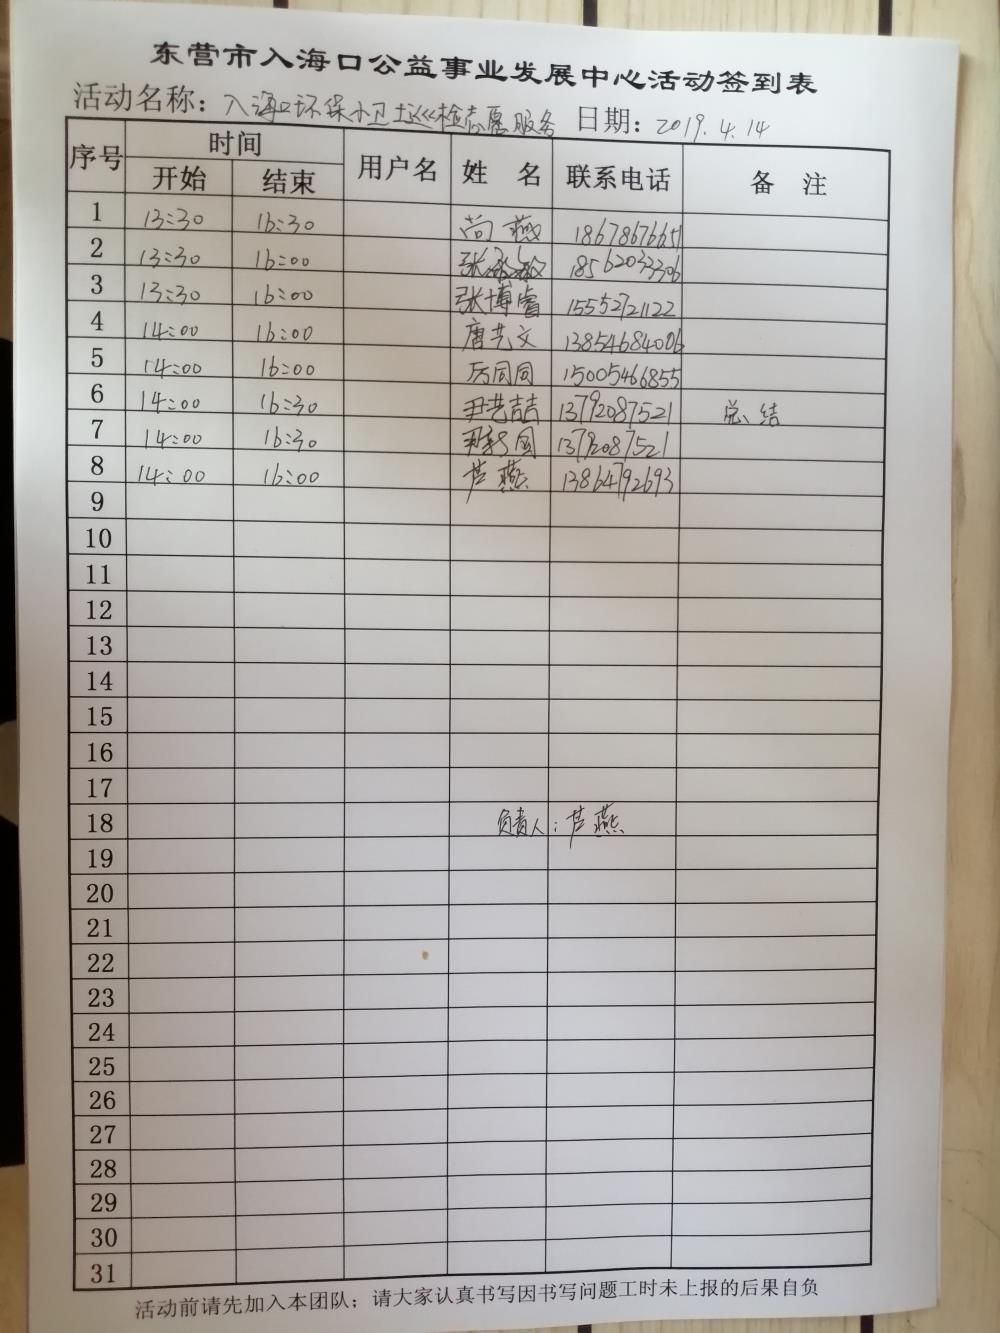 东营市入海口公益事业发展中心活动签到表
活动名称：入海口环保小卫士巡检志愿服务 日期：2019.4.14
序号 时间 用户名 姓 名 联系电话 备 注
开始 结束
1 13:30 16:30 尚燕 18678676651
2 13:30 16:00 张 敏 18562033306
3 13:30 16:00 张博睿 15552721122
4 14:00 16:00 唐艺文 13854684006
5 14:00 16:00 厉同同 15005466855
6 14:00 16:30 尹艺喆 13792087521 总结
7 14:00 16:30 13792087521
8 14:00 16:00 芦燕 13864792693
9
10
11
12
13
14
15
16
17
18 负责人：芦燕
19
20
21
22
23
24
25
26
27
28
29
30
31
活动前请先加入本团队；请大家认真书写因书写问题工时未上报的后果自负